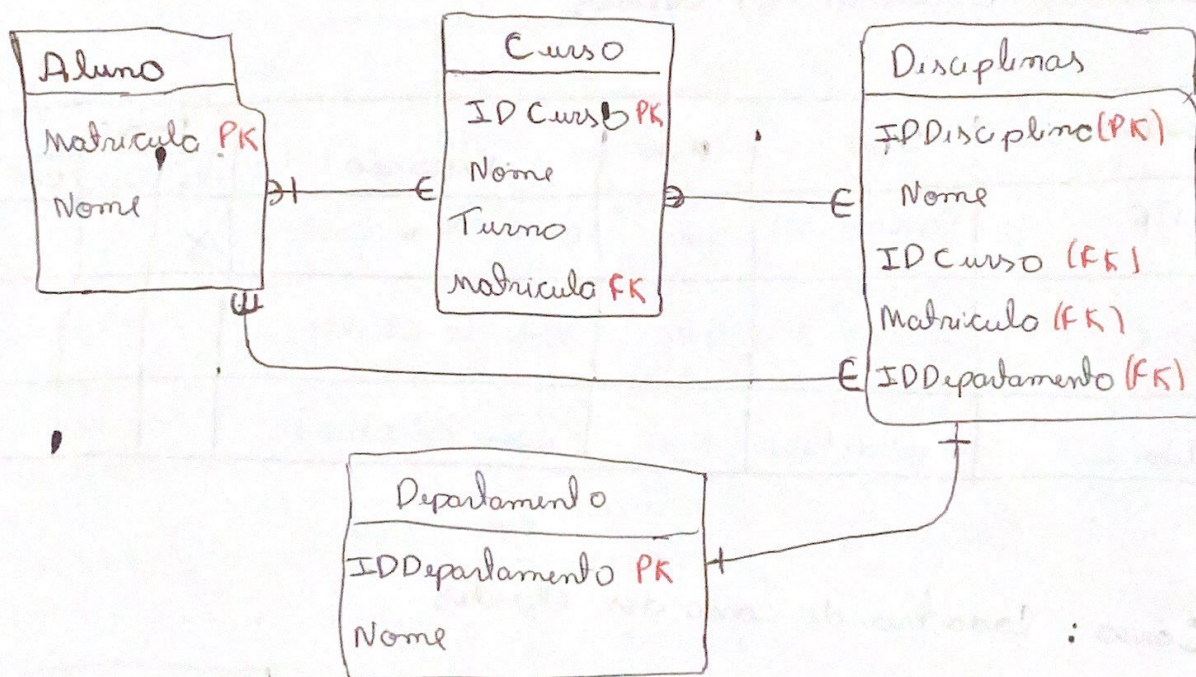 Aluno
Matricula PK
Nome
Curso
ID Curso PK
Nome
Turno
Matricula FK
Disciplinas
IDDisciplina (PK)
Nome
ID Curso (FK)
Matricula (FK)
IDDepartamento (FK)
Departamento
IDDepartamento PK
Nome